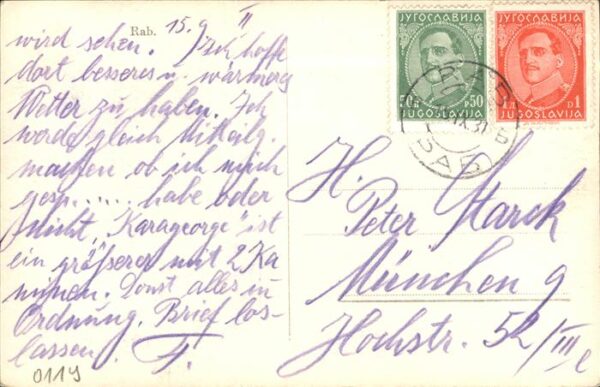 Rab. 15. 9. II
wird sehen. Ich hoffe
dort besseres u. wärmeres
Wetter zu haben. Ich
werde gleich Mitteilg.
machen ob ich mich
gesp...... habe oder
nicht. "Karageorge" ist
ein größerer mit 2 Ka
minen. Sonst alles in
Ordnung. Brief los-
lassen. F.
0119
ЈУГОСЛАВИЈА
50 P 50
JUGOSLAVIJA
ЈУГОСЛАВИЈА
1 D 1
JUGOSLAVIJA
РАБ
IX.31
RAB
H.
Peter Starck
München 9
Hochstr. 52/III l